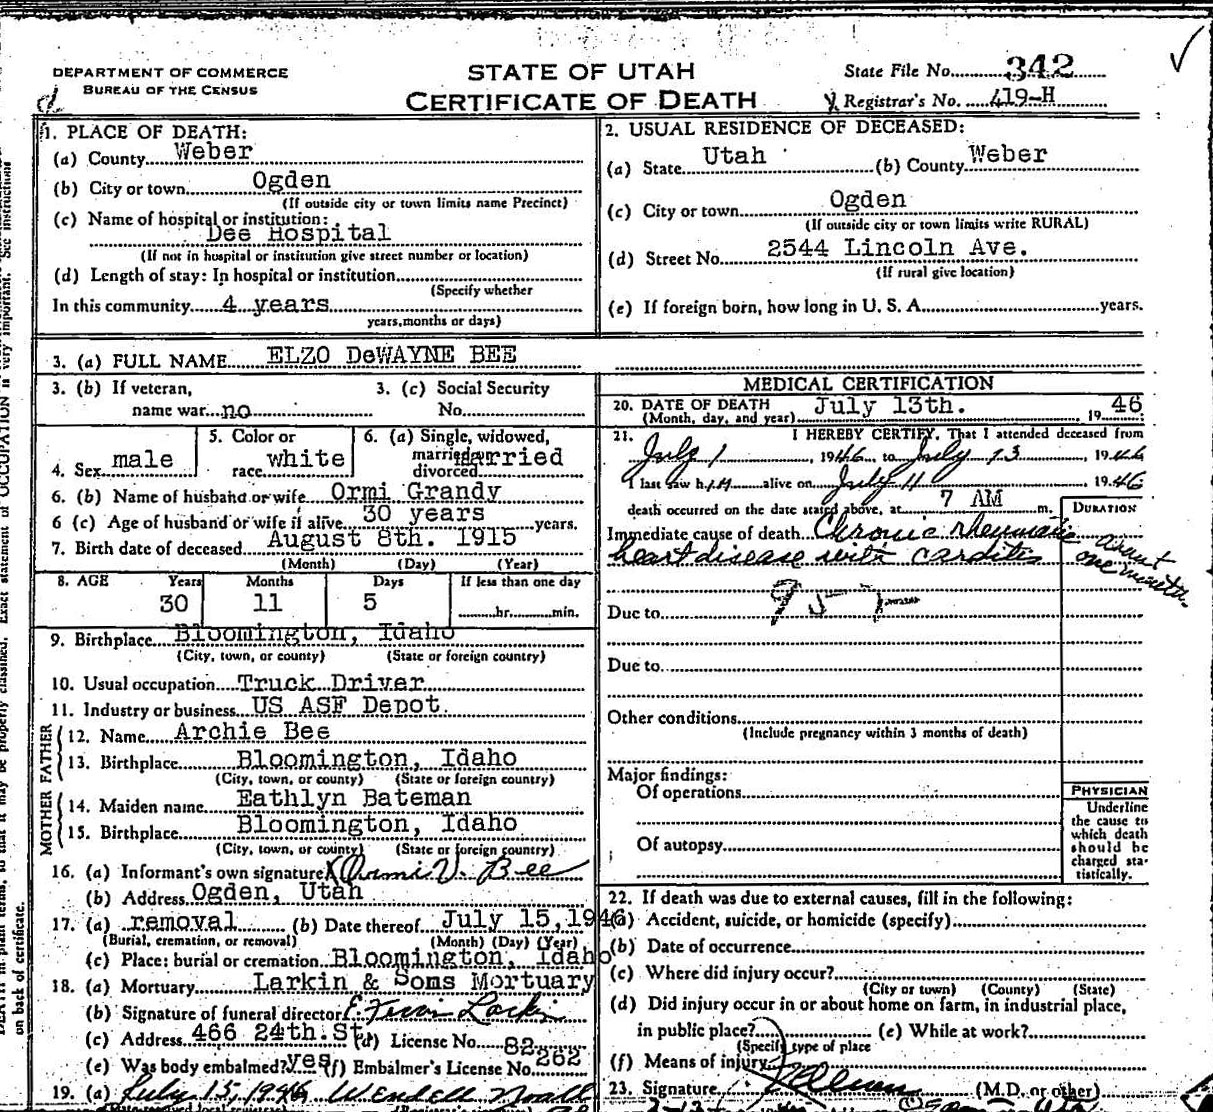 DEPARTMENT OF COMMERCE
BUREAU OF THE CENSUS
STATE OF UTAH
CERTIFICATE OF DEATH
State File No. 342
Registrar's No. 419-H
1. PLACE OF DEATH:
(a) County Weber
(b) City or town Ogden
(If outside city or town limits name Precinct)
(c) Name of hospital or institution:
Dee Hospital
(If not in hospital or institution give street number or location)
(d) Length of stay: In hospital or institution
(Specify whether
In this community 4 years
years, months or days)
2. USUAL RESIDENCE OF DECEASED:
(a) State Utah (b) County Weber
(c) City or town Ogden
(If outside city or town limits write RURAL)
(d) Street No. 2544 Lincoln Ave.
(If rural give location)
(e) If foreign born, how long in U. S. A. years.
3. (a) FULL NAME ELZO DeWAYNE BEE
3. (b) If veteran,
name war no
3. (c) Social Security
No.
4. Sex male
5. Color or
race white
6. (a) Single, widowed,
married,
divorced married
6. (b) Name of husband or wife Ormi Grandy
6 (c) Age of husband or wife if alive 30 years years.
7. Birth date of deceased August 8th. 1915
(Month) (Day) (Year)
8. AGE Years Months Days If less than one day
30 11 5 hr. min.
9. Birthplace Bloomington, Idaho
(City, town, or county) (State or foreign country)
10. Usual occupation Truck Driver
11. Industry or business US ASF Depot.
FATHER
12. Name Archie Bee
13. Birthplace Bloomington, Idaho
(City, town, or county) (State or foreign country)
MOTHER
14. Maiden name Eathlyn Bateman
15. Birthplace Bloomington, Idaho
(City, town, or county) (State or foreign country)
16. (a) Informant's own signature Ormi V. Bee
(b) Address Ogden, Utah
17. (a) removal (b) Date thereof July 15, 1946
(Burial, cremation, or removal) (Month) (Day) (Year)
(c) Place: burial or cremation Bloomington, Idaho
18. (a) Mortuary Larkin & Sons Mortuary
(b) Signature of funeral director Larkin
(c) Address 466 24th. St. (d) License No. 82
(e) Was body embalmed? yes (f) Embalmer's License No. 262
19. (a) July 15, 1946 Wendell Noall
MEDICAL CERTIFICATION
20. DATE OF DEATH July 13th. 19 46
(Month, day, and year)
21. I HEREBY CERTIFY, That I attended deceased from
July 1, 1946, to July 13, 1946
I last saw him alive on July 11 1946
death occurred on the date stated above, at 7 AM m.
DURATION
Immediate cause of death Chronic rheumatic
heart disease with carditis
about
one month
Due to
Due to
Other conditions
(Include pregnancy within 3 months of death)
Major findings:
Of operations
Of autopsy
PHYSICIAN
Underline
the cause to
which death
should be
charged sta-
tistically.
22. If death was due to external causes, fill in the following:
(a) Accident, suicide, or homicide (specify)
(b) Date of occurrence
(c) Where did injury occur?
(City or town) (County) (State)
(d) Did injury occur in or about home on farm, in industrial place,
in public place? (e) While at work?
(Specify type of place
(f) Means of injury
23. Signature (M.D. or other)